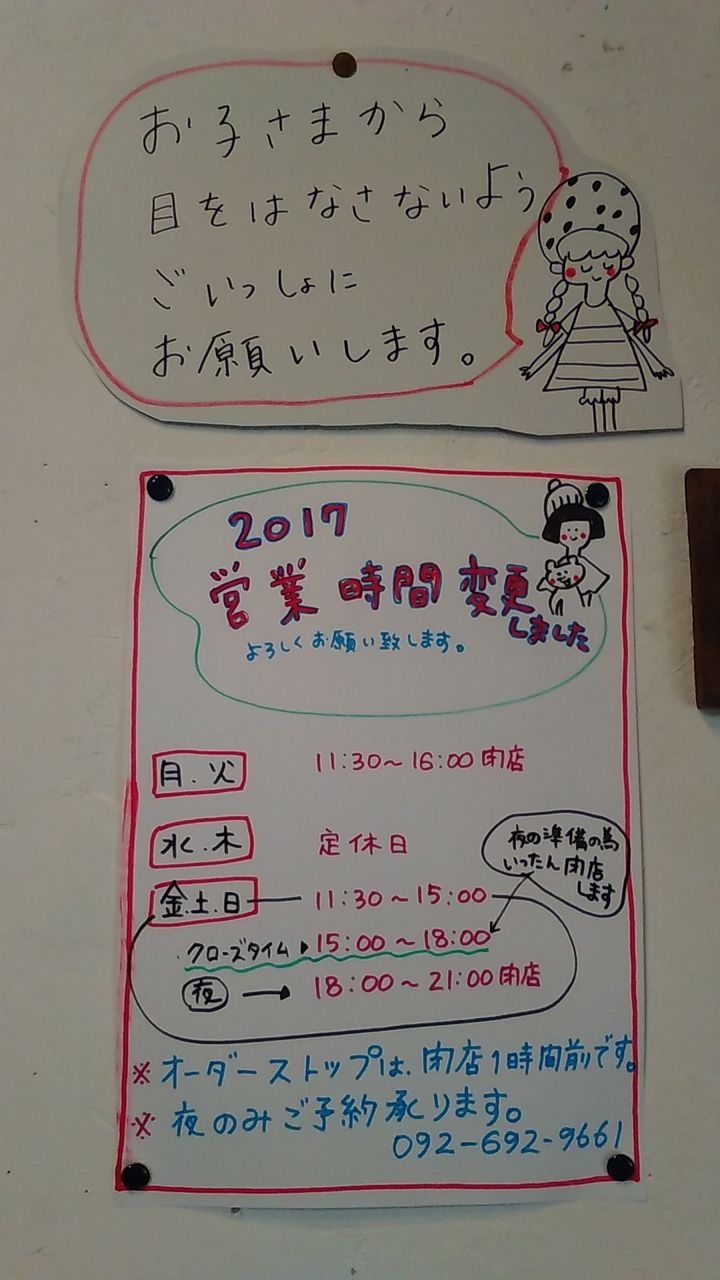 お子さまから
目をはなさないよう
ごいっしょに
お願いします。
2017
営業時間変更
しました
よろしくお願い致します。
月.火 11:30～16:00閉店
水.木 定休日
夜の準備の為
いったん閉店
します
金.土.日 11:30～15:00
クローズタイム 15:00～18:00
夜 → 18:00～21:00閉店
※オーダーストップは、閉店1時間前です。
※夜のみご予約承ります。
092-692-9661